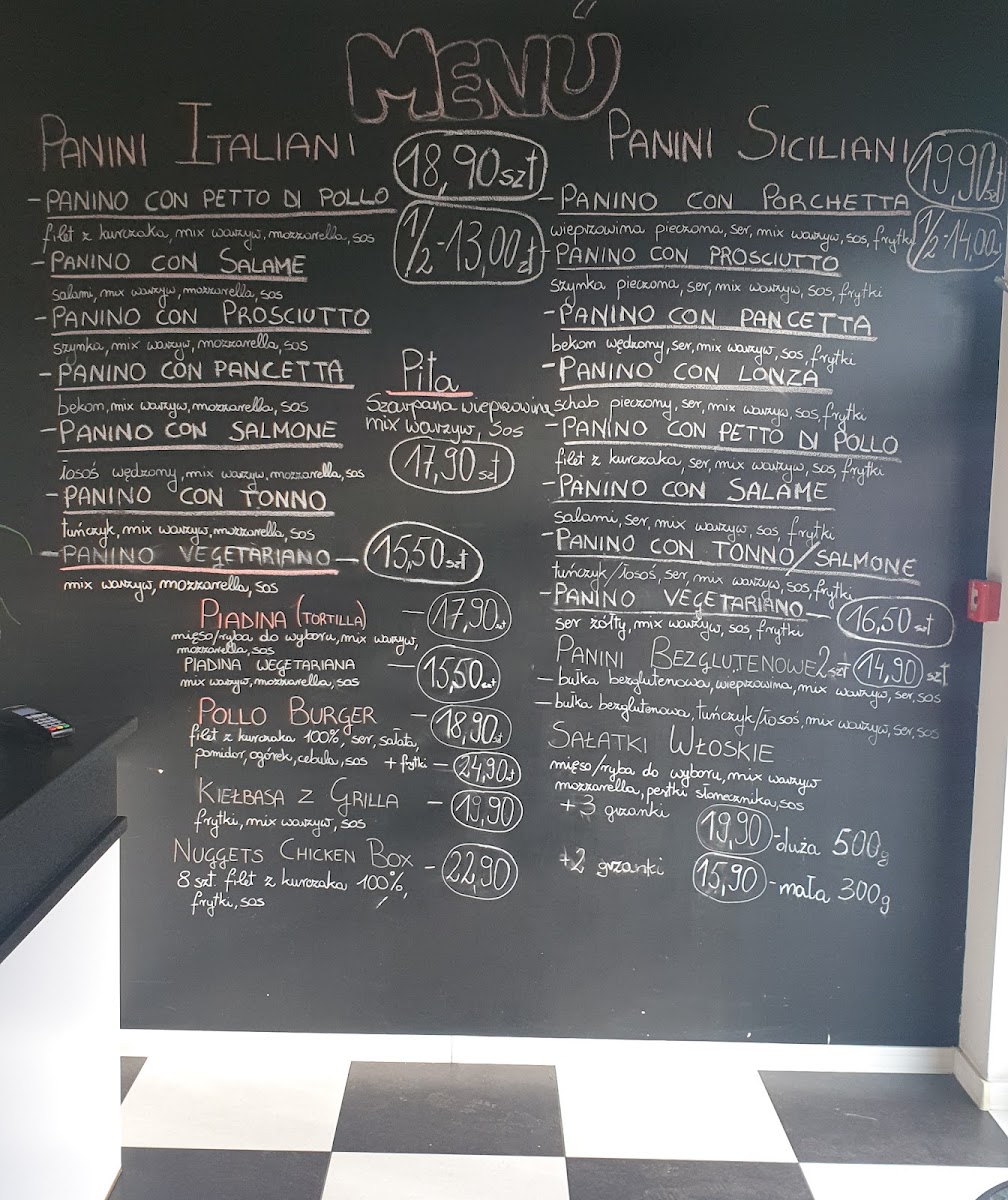 MENÚ
PANINI ITALIANI
18,90 szł
1/2 - 13,00 zł
- PANINO CON PETTO DI POLLO
filet z kurczaka, mix warzyw, mozzarella, sos
- PANINO CON SALAME
salami, mix warzyw, mozzarella, sos
- PANINO CON PROSCIUTTO
szynka, mix warzyw, mozzarella, sos
- PANINO CON PANCETTA
bekon, mix warzyw, mozzarella, sos
- PANINO CON SALMONE
łosoś wędzony, mix warzyw, mozzarella, sos
- PANINO CON TONNO
tuńczyk, mix warzyw, mozzarella, sos
- PANINO VEGETARIANO - 15,50 szł
mix warzyw, mozzarella, sos
Pita
Szarpana wieprzowina
mix warzyw, sos
17,90 szł
PIADINA (TORTILLA) - 17,90 szł
mięso/ryba do wyboru, mix warzyw,
mozzarella, sos
PIADINA WEGETARIANA - 15,50 szł
mix warzyw, mozzarella, sos
POLLO BURGER - 18,90 zł
filet z kurczaka 100%, ser, sałata,
pomidor, ogórek, cebula, sos + frytki - 24,90 zł
KIEŁBASA Z GRILLA - 19,90
frytki, mix warzyw, sos
NUGGETS CHICKEN BOX - 22,90
8 szt. filet z kurczaka 100%,
frytki, sos
PANINI SICILIANI
19,90 szł
1/2 - 14,00
- PANINO CON PORCHETTA
wieprzowina pieczona, ser, mix warzyw, sos, frytki
- PANINO CON PROSCIUTTO
szynka pieczona, ser, mix warzyw, sos, frytki
- PANINO CON PANCETTA
bekon wędzony, ser, mix warzyw, sos, frytki
- PANINO CON LONZA
schab pieczony, ser, mix warzyw, sos, frytki
- PANINO CON PETTO DI POLLO
filet z kurczaka, ser, mix warzyw, sos, frytki
- PANINO CON SALAME
salami, ser, mix warzyw, sos, frytki
- PANINO CON TONNO/SALMONE
tuńczyk/łosoś, ser, mix warzyw, sos, frytki
- PANINO VEGETARIANO 16,50 szł
ser żółty, mix warzyw, sos, frytki
PANINI BEZGLUTENOWE 2 szł 14,90 szł
- bułka bezglutenowa, wieprzowina, mix warzyw, ser, sos
- bułka bezglutenowa, tuńczyk/łosoś, mix warzyw, ser, sos
SAŁATKI WŁOSKIE
mięso/ryba do wyboru, mix warzyw
mozzarella, pestki słonecznika, sos
+ 3 grzanki 19,90 - duża 500g
+ 2 grzanki 15,90 - mała 300g